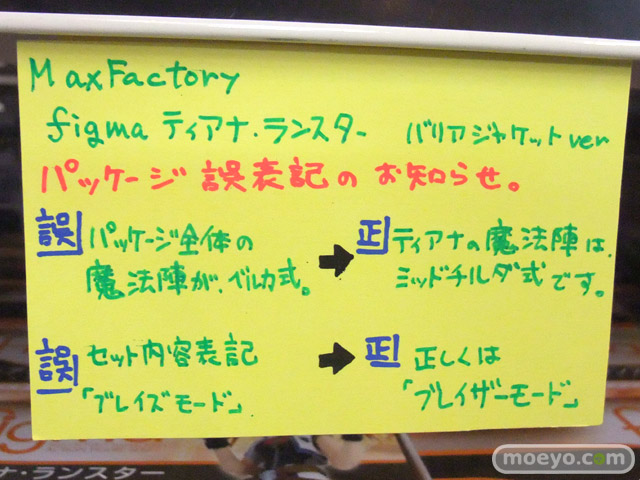 MaxFactory
figma ティアナ・ランスター バリアジャケットver
パッケージ 誤表記の お知らせ。
誤 パッケージ全体の
魔法陣が、ベルカ式。
正 ティアナの魔法陣は、
ミッドチルダ式です。
誤 セット内容表記
「ブレイズモード」
正 正しくは
「ブレイザーモード」
ナ・ランスター
moeyo.com